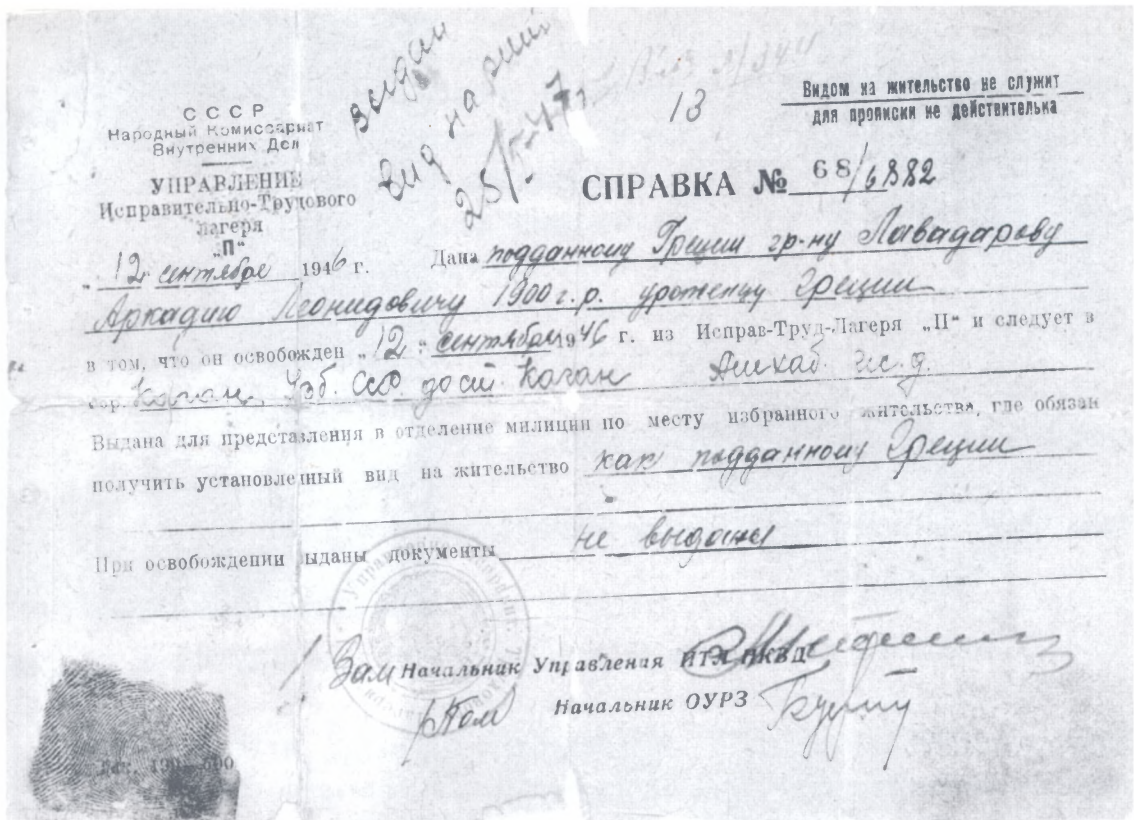 выдан
вид на
25/5-47г
13
Видом на жительство не служит
для прописки не действительна
С С С Р
Народный Комиссариат
Внутренних Дел
УПРАВЛЕНИЕ
Исправительно-Трудового
лагеря
„П"
„12" сентября 1946 г.
СПРАВКА № 68/6882
Дана подданному Греции гр-ну Лавадарову
Аркадию Леонидовичу 1900 г.р. уроженцу Греции
в том, что он освобожден „12" сентября 1946 г. из Исправ-Труд-Лагеря „П" и следует в
гор. Каган, Узб. ССР до ст. Каган Ашхаб. ж.д.
Выдана для представления в отделение милиции по месту избранного жительства, где обязан
получить установленный вид на жительство как подданному Греции
При освобождении выданы документы не выданы
Зам Начальник Управления ИТЛ НКВД
Начальник ОУРЗ